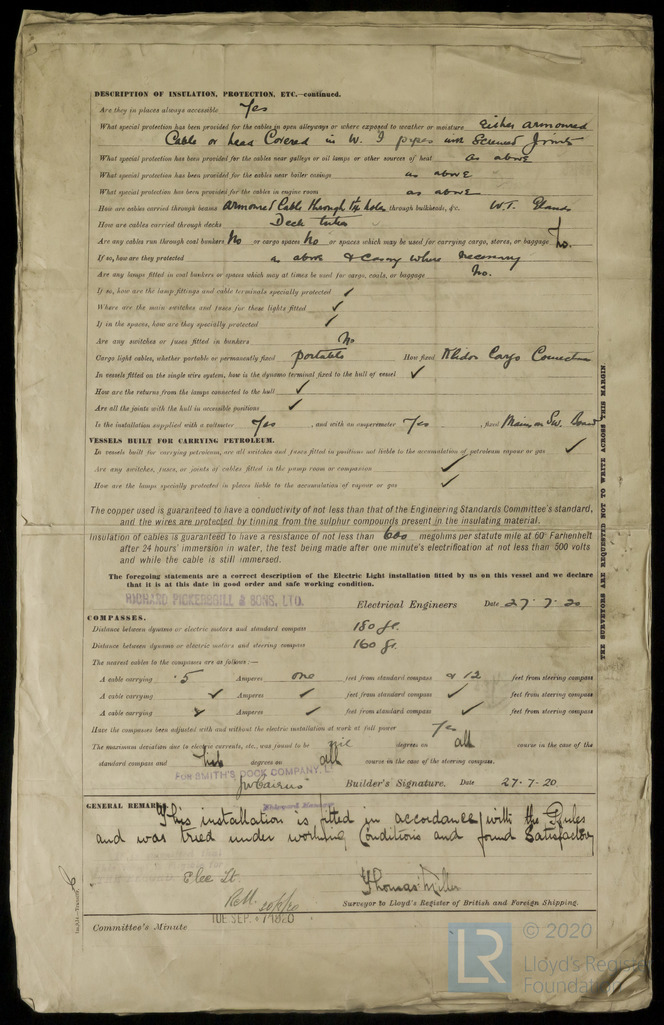 DESCRIPTION OF INSULATION, PROTECTION, ETC.—continued.
Are they in places always accessible Yes
What special protection has been provided for the cables in open alleyways or where exposed to weather or moisture either armoured
Cable or lead Covered in W. I pipes with Screwed Joints
What special protection has been provided for the cables near galleys or oil lamps or other sources of heat as above
What special protection has been provided for the cables near boiler casings as above
What special protection has been provided for the cables in engine room as above
How are cables carried through beams armoured Cable through the holes through bulkheads, &c. W.T. Glands
How are cables carried through decks Deck tubes
Are any cables run through coal bunkers No or cargo spaces No or spaces which may be used for carrying cargo, stores, or baggage No.
If so, how are they protected as above & Casing where necessary
Are any lamps fitted in coal bunkers or spaces which may at times be used for cargo, coals, or baggage No.
If so, how are the lamp fittings and cable terminals specially protected ✓
Where are the main switches and fuses for these lights fitted ✓
If in the spaces, how are they specially protected ✓
Are any switches or fuses fitted in bunkers No
Cargo light cables, whether portable or permanently fixed portable How fixed Cargo Connection
In vessels fitted on the single wire system, how is the dynamo terminal fixed to the hull of vessel ✓
How are the returns from the lamps connected to the hull ✓
Are all the joints with the hull in accessible positions ✓
Is the installation supplied with a voltmeter Yes, and with an amperemeter Yes, fixed Main Sw. Board
VESSELS BUILT FOR CARRYING PETROLEUM.
In vessels built for carrying petroleum, are all switches and fuses fitted in positions not liable to the accumulation of petroleum vapour or gas ✓
Are any switches, fuses, or joints of cables fitted in the pump room or companion ✓
How are the lamps specially protected in places liable to the accumulation of vapour or gas ✓
The copper used is guaranteed to have a conductivity of not less than that of the Engineering Standards Committee's standard,
and the wires are protected by tinning from the sulphur compounds present in the insulating material.
Insulation of cables is guaranteed to have a resistance of not less than 600 megohms per statute mile at 60° Farhenheit
after 24 hours' immersion in water, the test being made after one minute's electrification at not less than 500 volts
and while the cable is still immersed.
The foregoing statements are a correct description of the Electric Light installation fitted by us on this vessel and we declare
that it is at this date in good order and safe working condition.
RICHARD PICKERSGILL & SONS, LTD. Electrical Engineers Date 27.7.20
COMPASSES.
Distance between dynamo or electric motors and standard compass 180 ft.
Distance between dynamo or electric motors and steering compass 160 ft.
The nearest cables to the compasses are as follows:—
A cable carrying .5 Amperes one feet from standard compass & 12 feet from steering compass
A cable carrying ✓ Amperes ✓ feet from standard compass ✓ feet from steering compass
A cable carrying ✓ Amperes ✓ feet from standard compass ✓ feet from steering compass
Have the compasses been adjusted with and without the electric installation at work at full power Yes
The maximum deviation due to electric currents, etc., was found to be nil degrees on all course in the case of the
standard compass and degrees on all course in the case of the steering compass.
FOR SMITH'S DOCK COMPANY, LD
JW Cairns Builder's Signature. Date 27-7-20
GENERAL REMARKS
This installation is fitted in accordance with the Rules
and was tried under working Conditions and found Satisfactory
Elec Lt.
Thomas Miller
Surveyor to Lloyd's Register of British and Foreign Shipping.
TUE. SEP. 1920
Committee's Minute
THE SURVEYORS ARE REQUESTED NOT TO WRITE ACROSS THIS MARGIN
LR © 2020
Lloyd's Register
Foundation